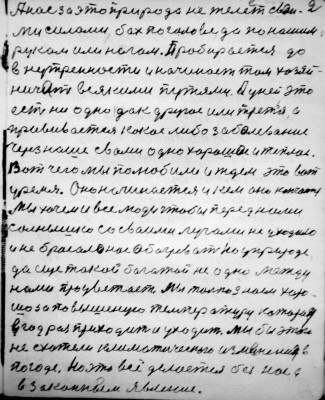 А нас за это природа не жалеет свои- 2
ми силами, бах по голове да по нашим
рукам или ногам. Пробирается до
внутренности и начинает там хозяй-
ничать всякими путями. А у ней это
есть ни одно дак другое или третье, а
прививается какое либо заболевание
через наше самое одно хорошее и теплое.
Вот чего мы полюбили и ждем это вот
время. Оно начинается и кем оно
Мы хочем и все люди чтобы перед нами
солнышко со своими лучами не уходило
и не бросало нас обогревать. Но у природе
да еще такой богатой не одно между
нами процветает. Мы только знаем хоро-
шо за повышенную температуру которая
в год раз приходит и уходит. Мы бы этого
не схотели климатического изменения в
погоде. Но это всё делается без нас а
в законным явление.